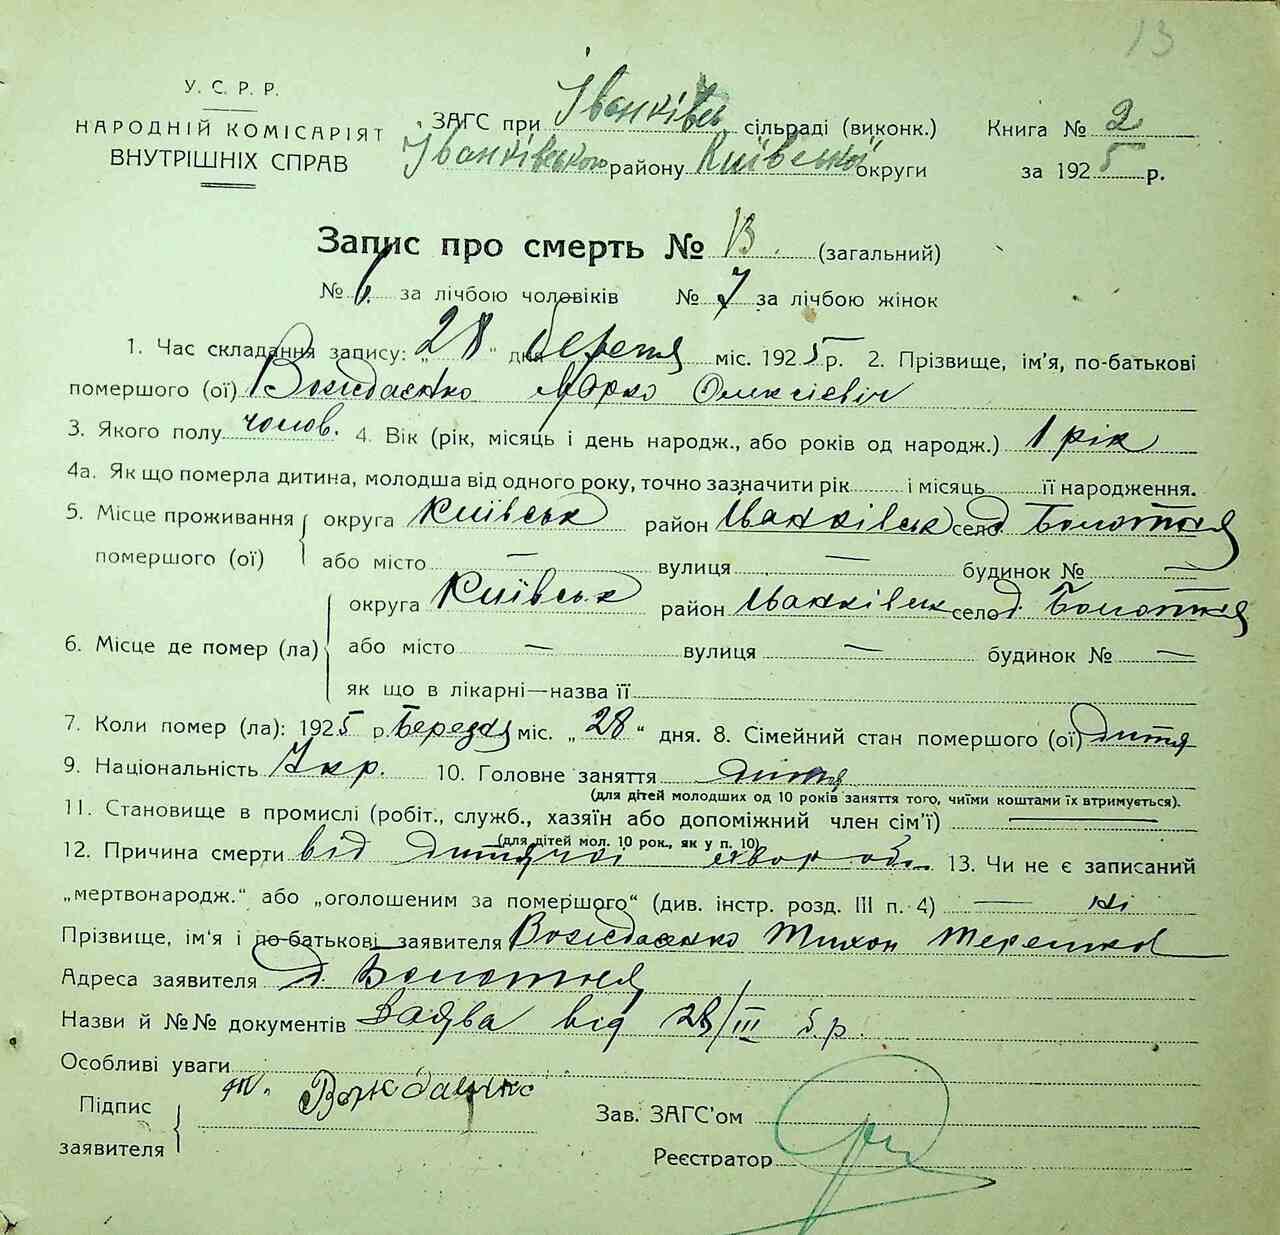 13
У. С. Р. Р.
НАРОДНІЙ КОМІСАРІЯТ
ВНУТРІШНІХ СПРАВ
ЗАГС при Іванківськ сільраді (виконк.)
Іванківського району Київської округи
Книга № 2
за 1925 р.
Запис про смерть № 13. (загальний)
№ 6 за лічбою чоловіків № 7 за лічбою жінок
1. Час складання запису: „28“ дня березня міс. 1925 р. 2. Прізвище, ім'я, по-батькові
помершого (ої) Марко Олексієвіч
3. Якого полу чолов. 4. Вік (рік, місяць і день народж., або років од народж.) 1 рік
4а. Як що померла дитина, молодша від одного року, точно зазначити рік і місяць її народження.
5. Місце проживання помершого (ої) округа Київськ район Іванківськ село д. Болотня
або місто — вулиця — будинок № —
6. Місце де помер (ла) округа Київськ район Іванківськ село д. Болотня
або місто — вулиця — будинок № —
як що в лікарні—назва її
7. Коли помер (ла): 1925 р. Березня міс. „28“ дня. 8. Сімейний стан помершого (ої) дитя
9. Національність Укр. 10. Головне заняття дитя
(для дітей молодших од 10 років заняття того, чиїми коштами їх втримується).
11. Становище в промислі (робіт., служб., хазяїн або допоміжний член сім'ї) —
(для дітей мол. 10 рок., як у п. 10)
12. Причина смерти від дитячої хвороби. 13. Чи не є записаний
„мертвонародж.“ або „оголошеним за помершого“ (див. інстр. розд. III п. 4) — ні
Прізвище, ім'я і по-батькові заявителя Тихон
Адреса заявителя д. Болотня
Назви й №№ документів Заява від 28/III б.р.
Особливі уваги
Підпис заявителя
Зав. ЗАГС'ом
Реєстратор